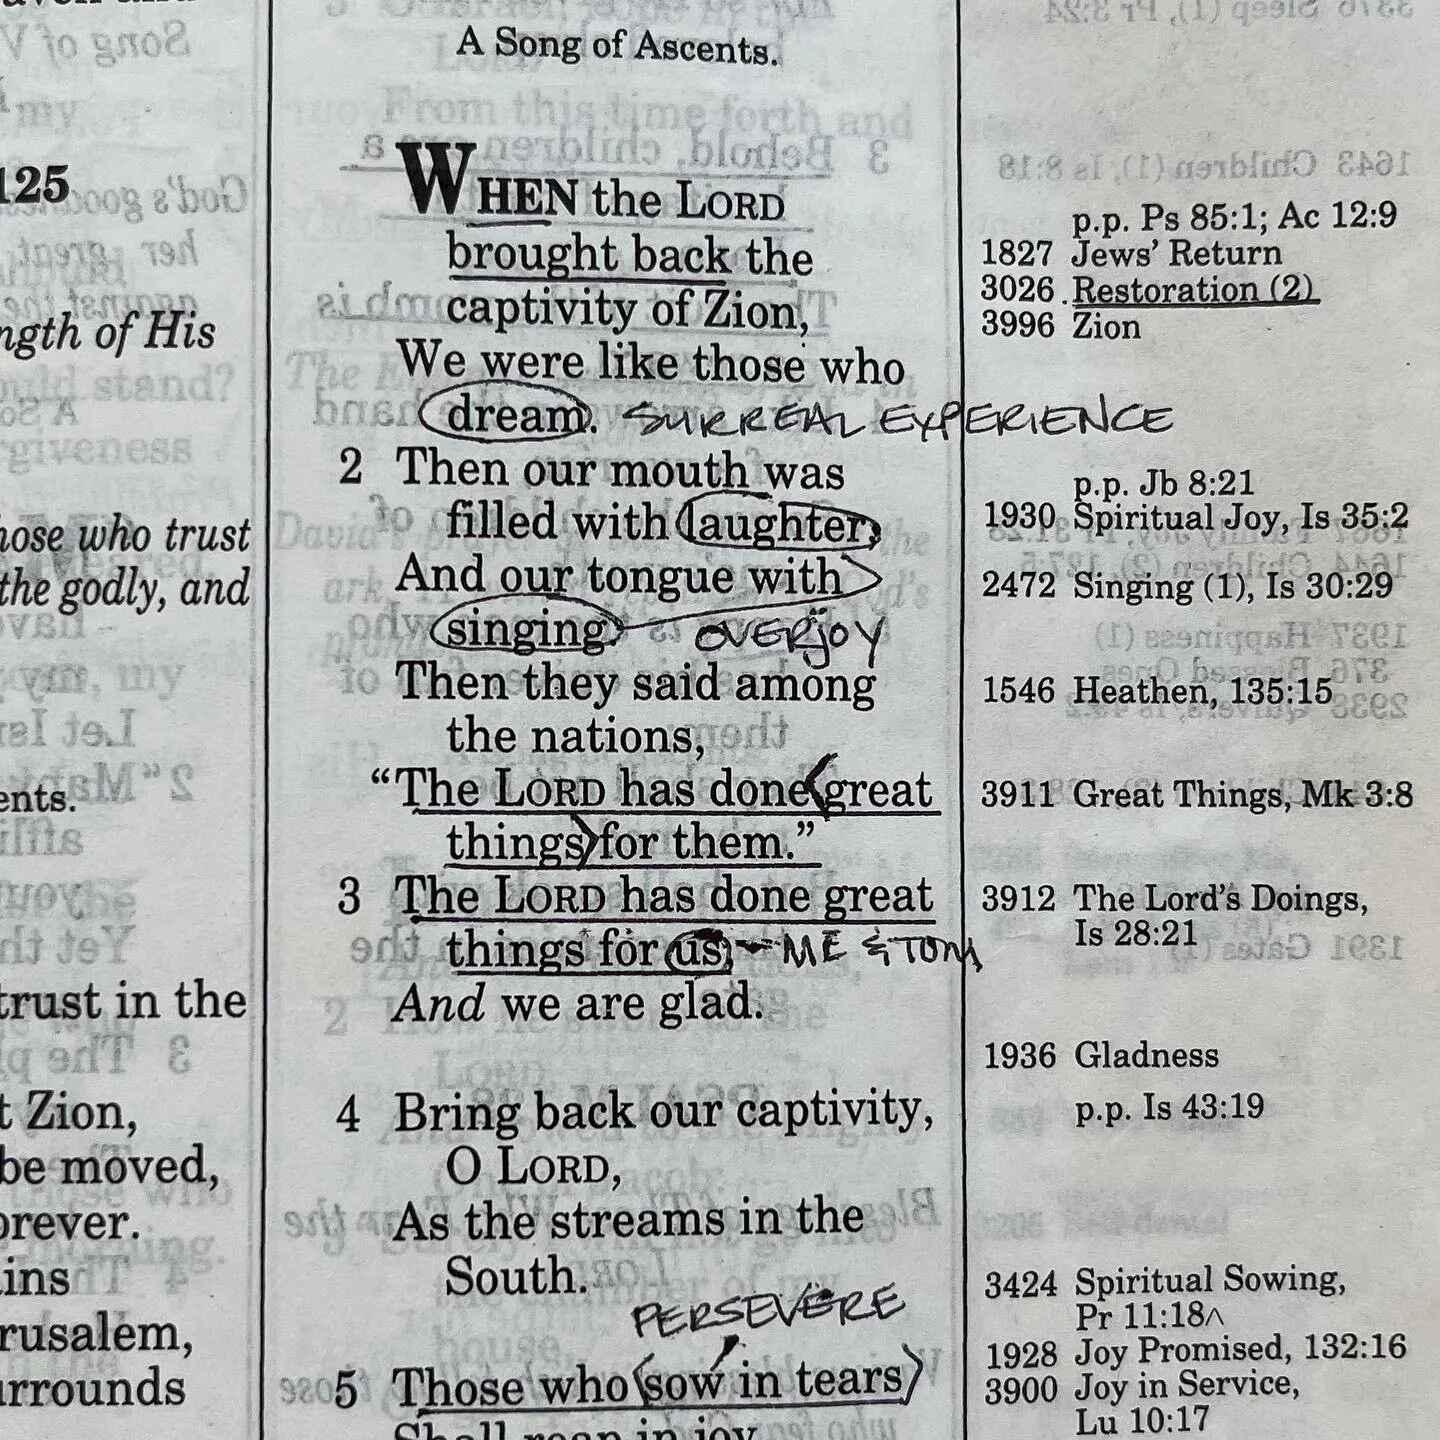 125
ngth of His
hose who trust
the godly, and
ents.
trust in the
t Zion,
be moved,
orever.
ins
rusalem,
urrounds
A Song of Ascents.
WHEN the LORD
brought back the
captivity of Zion,
We were like those who
dream. SURREAL EXPERIENCE
2 Then our mouth was
filled with laughter,
And our tongue with
singing. OVERJOY
Then they said among
the nations,
“The LORD has done great
things for them.”
3 The LORD has done great
things for us, ME & TOM
And we are glad.
4 Bring back our captivity,
O LORD,
As the streams in the
South.
PERSEVERE
5 Those who sow in tears
Shall reap in joy.
p.p. Ps 85:1; Ac 12:9
1827 Jews’ Return
3026 Restoration (2)
3996 Zion
p.p. Jb 8:21
1930 Spiritual Joy, Is 35:2
2472 Singing (1), Is 30:29
1546 Heathen, 135:15
3911 Great Things, Mk 3:8
3912 The Lord’s Doings,
Is 28:21
1936 Gladness
p.p. Is 43:19
3424 Spiritual Sowing,
Pr 11:18^
1928 Joy Promised, 132:16
3900 Joy in Service,
Lu 10:17